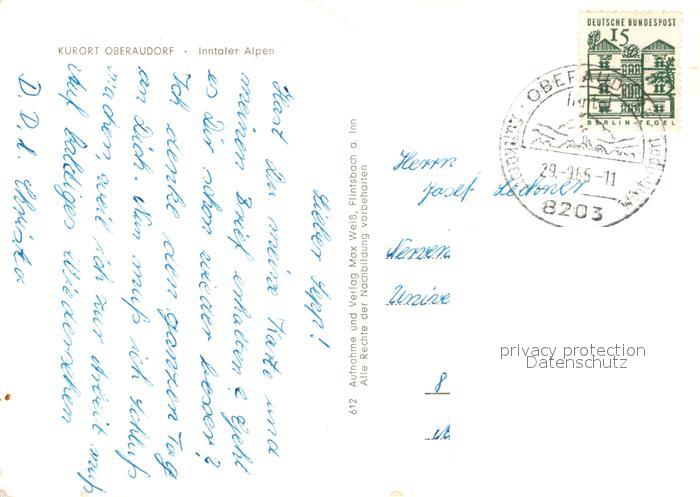 KURORT OBERAUDORF • Inntaler Alpen
Lieber Sepp!
Hast Du meine Karte und
meinen Brief erhalten? Geht
es Dir schon wieder besser?
Ich denke den ganzen Tag
an Dich. Nun muß ich Schluß
machen, weil ich zur Arbeit muß
Auf baldiges Wiedersehen
D. D. l. Christa
612 Aufnahme und Verlag Max Weiß, Flintsbach a. Inn
Alle Rechte der Nachbildung vorbehalten
DEUTSCHE BUNDESPOST
15
BERLIN-TEGEL
OBERAUDORF
Luftkurort
Wintersport
29.-9.65-11
8203
Herrn
Josef Lechner
Nerven
Unive
8
privacy protection
Datenschutz